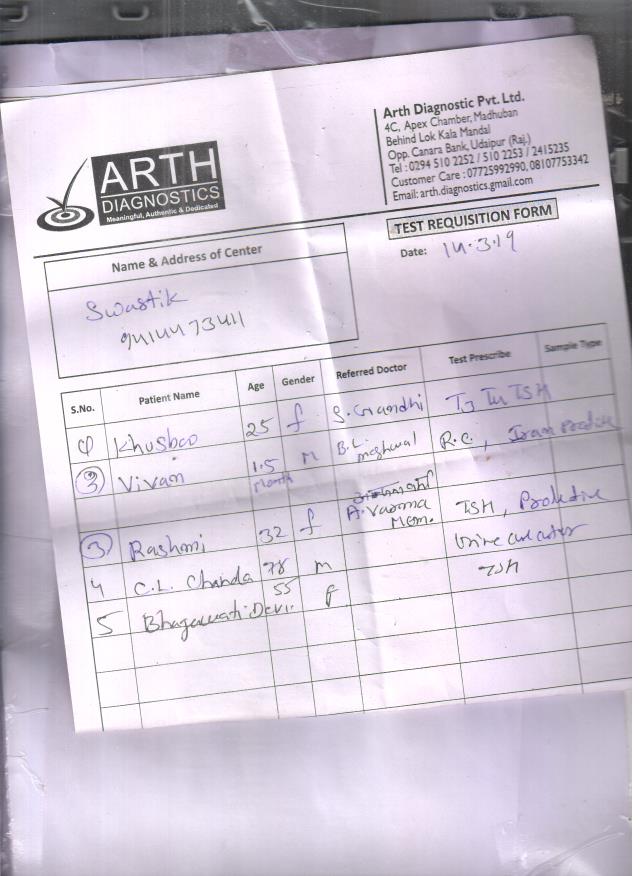 ARTH
DIAGNOSTICS
Meaningful, Authentic & Dedicated
Arth Diagnostic Pvt. Ltd.
4C, Apex Chamber, Madhuban
Behind Lok Kala Mandal
Opp. Canara Bank, Udaipur (Raj.)
Tel : 0294 510 2252 / 510 2253 / 2415235
Customer Care : 07725992990, 08107753342
Email: arth.diagnostics.gmail.com
TEST REQUISITION FORM
Date: 14.3.19
Name & Address of Center
Swastik
9414473411
S.No. Patient Name Age Gender Referred Doctor Test Prescribe Sample Type
1 Khusboo 25 f S. Gandhi T3 T4 TSH
2 Vivan 1.5 month m B.L. meghwal R.C., Iron Profile
3 Rashmi 32 f A. Varma Mem. TSH, Prolactine
4 C.L. Chanda 78 m Urine culture
5 Bhagawati Devi. 55 f TSH